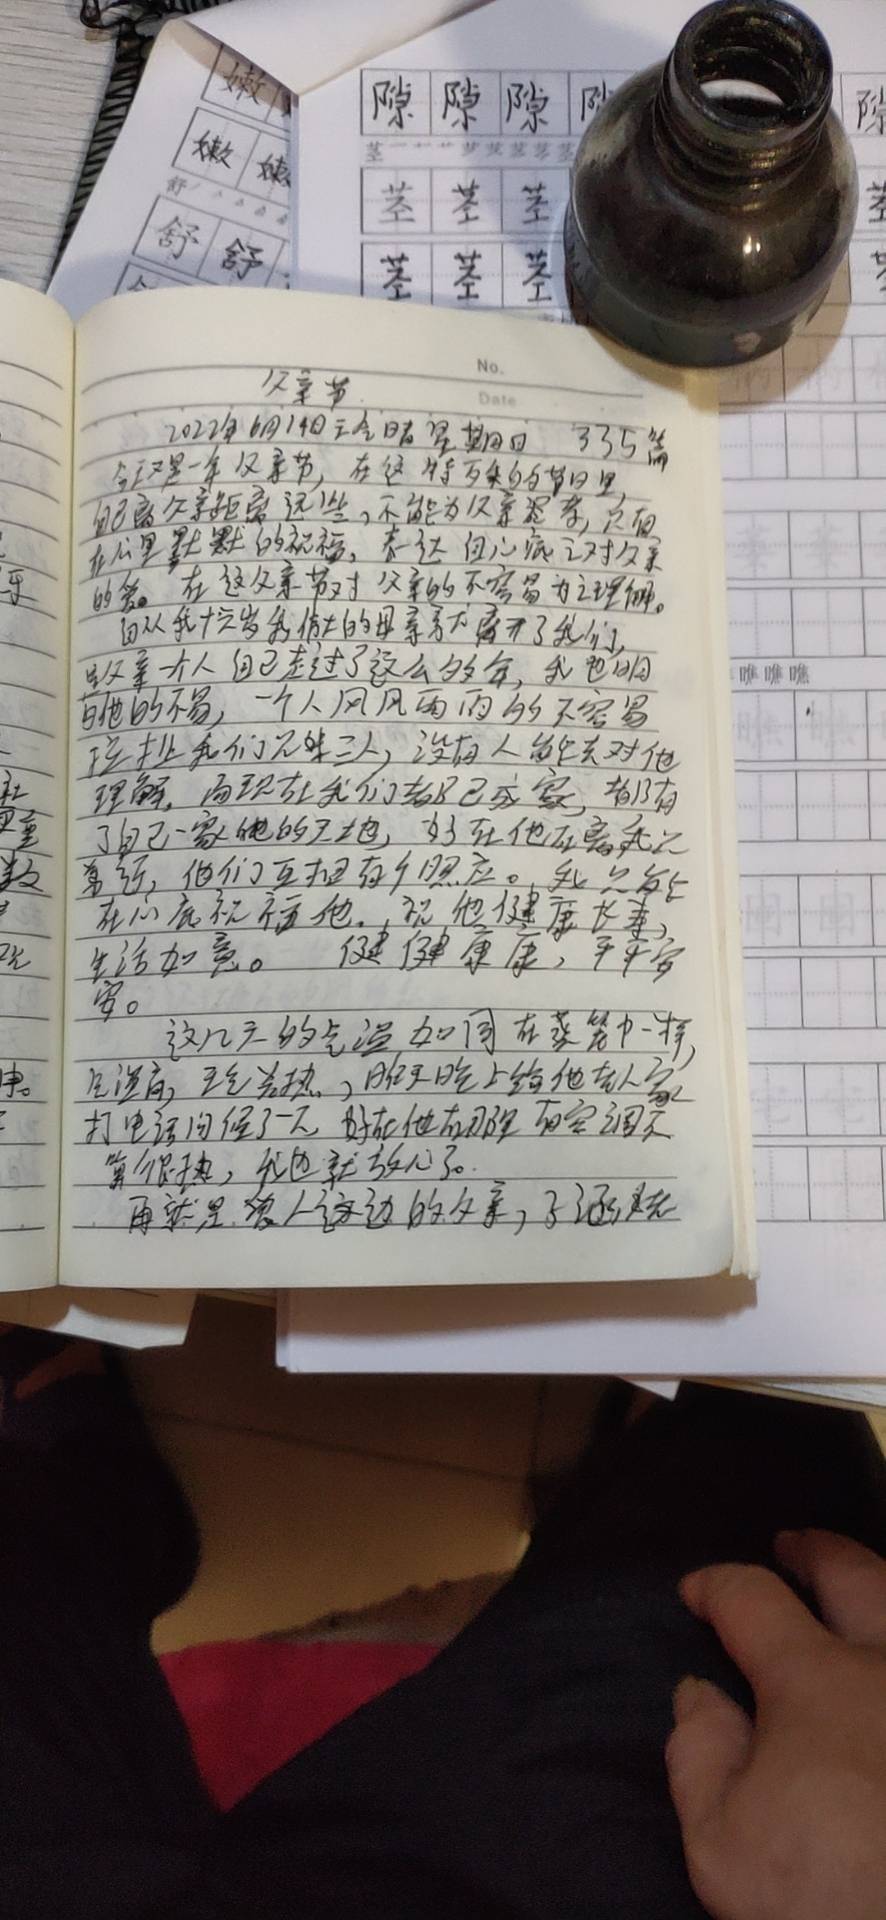 嫩
嫩 嫩
舒
舒 舒
隙 隙 隙 隙
茎
茎 茎 茎
茎 茎 茎
No.
Date
父亲节
2022年6月19日 天气晴 星期日 335篇
今天又是一年父亲节，在这特殊的节日里，
自己离父亲距离远些，不能为父亲 只有
在心里默默的祝福，表达自心底之对父亲
的爱。在这父亲节对父亲的不容易为之理解。
自从我十六岁我伟大的母亲 离开了我们，
是父亲一个人自己走过了这么多年，我也明
白他的不易，一个人风风雨雨的不容易
拉扯我们兄妹三人，没有人能去对他
理解，而现在我们都已成家，都有
了自己一家 的天地，好在他在离我兄
弟近，他们互相有个照应。我只能
在心底祝福他。祝他健康长寿，
生活如意。 健健康康，平平安
安。
这几天的气温如同在蒸笼中一样，
气温高，天气炎热，昨天晚上给他老人家
打电话问候了一下，好在他在那里有空调不
算很热，我也就放心了。
再就是 人这边的父亲，
瞧 瞧 瞧